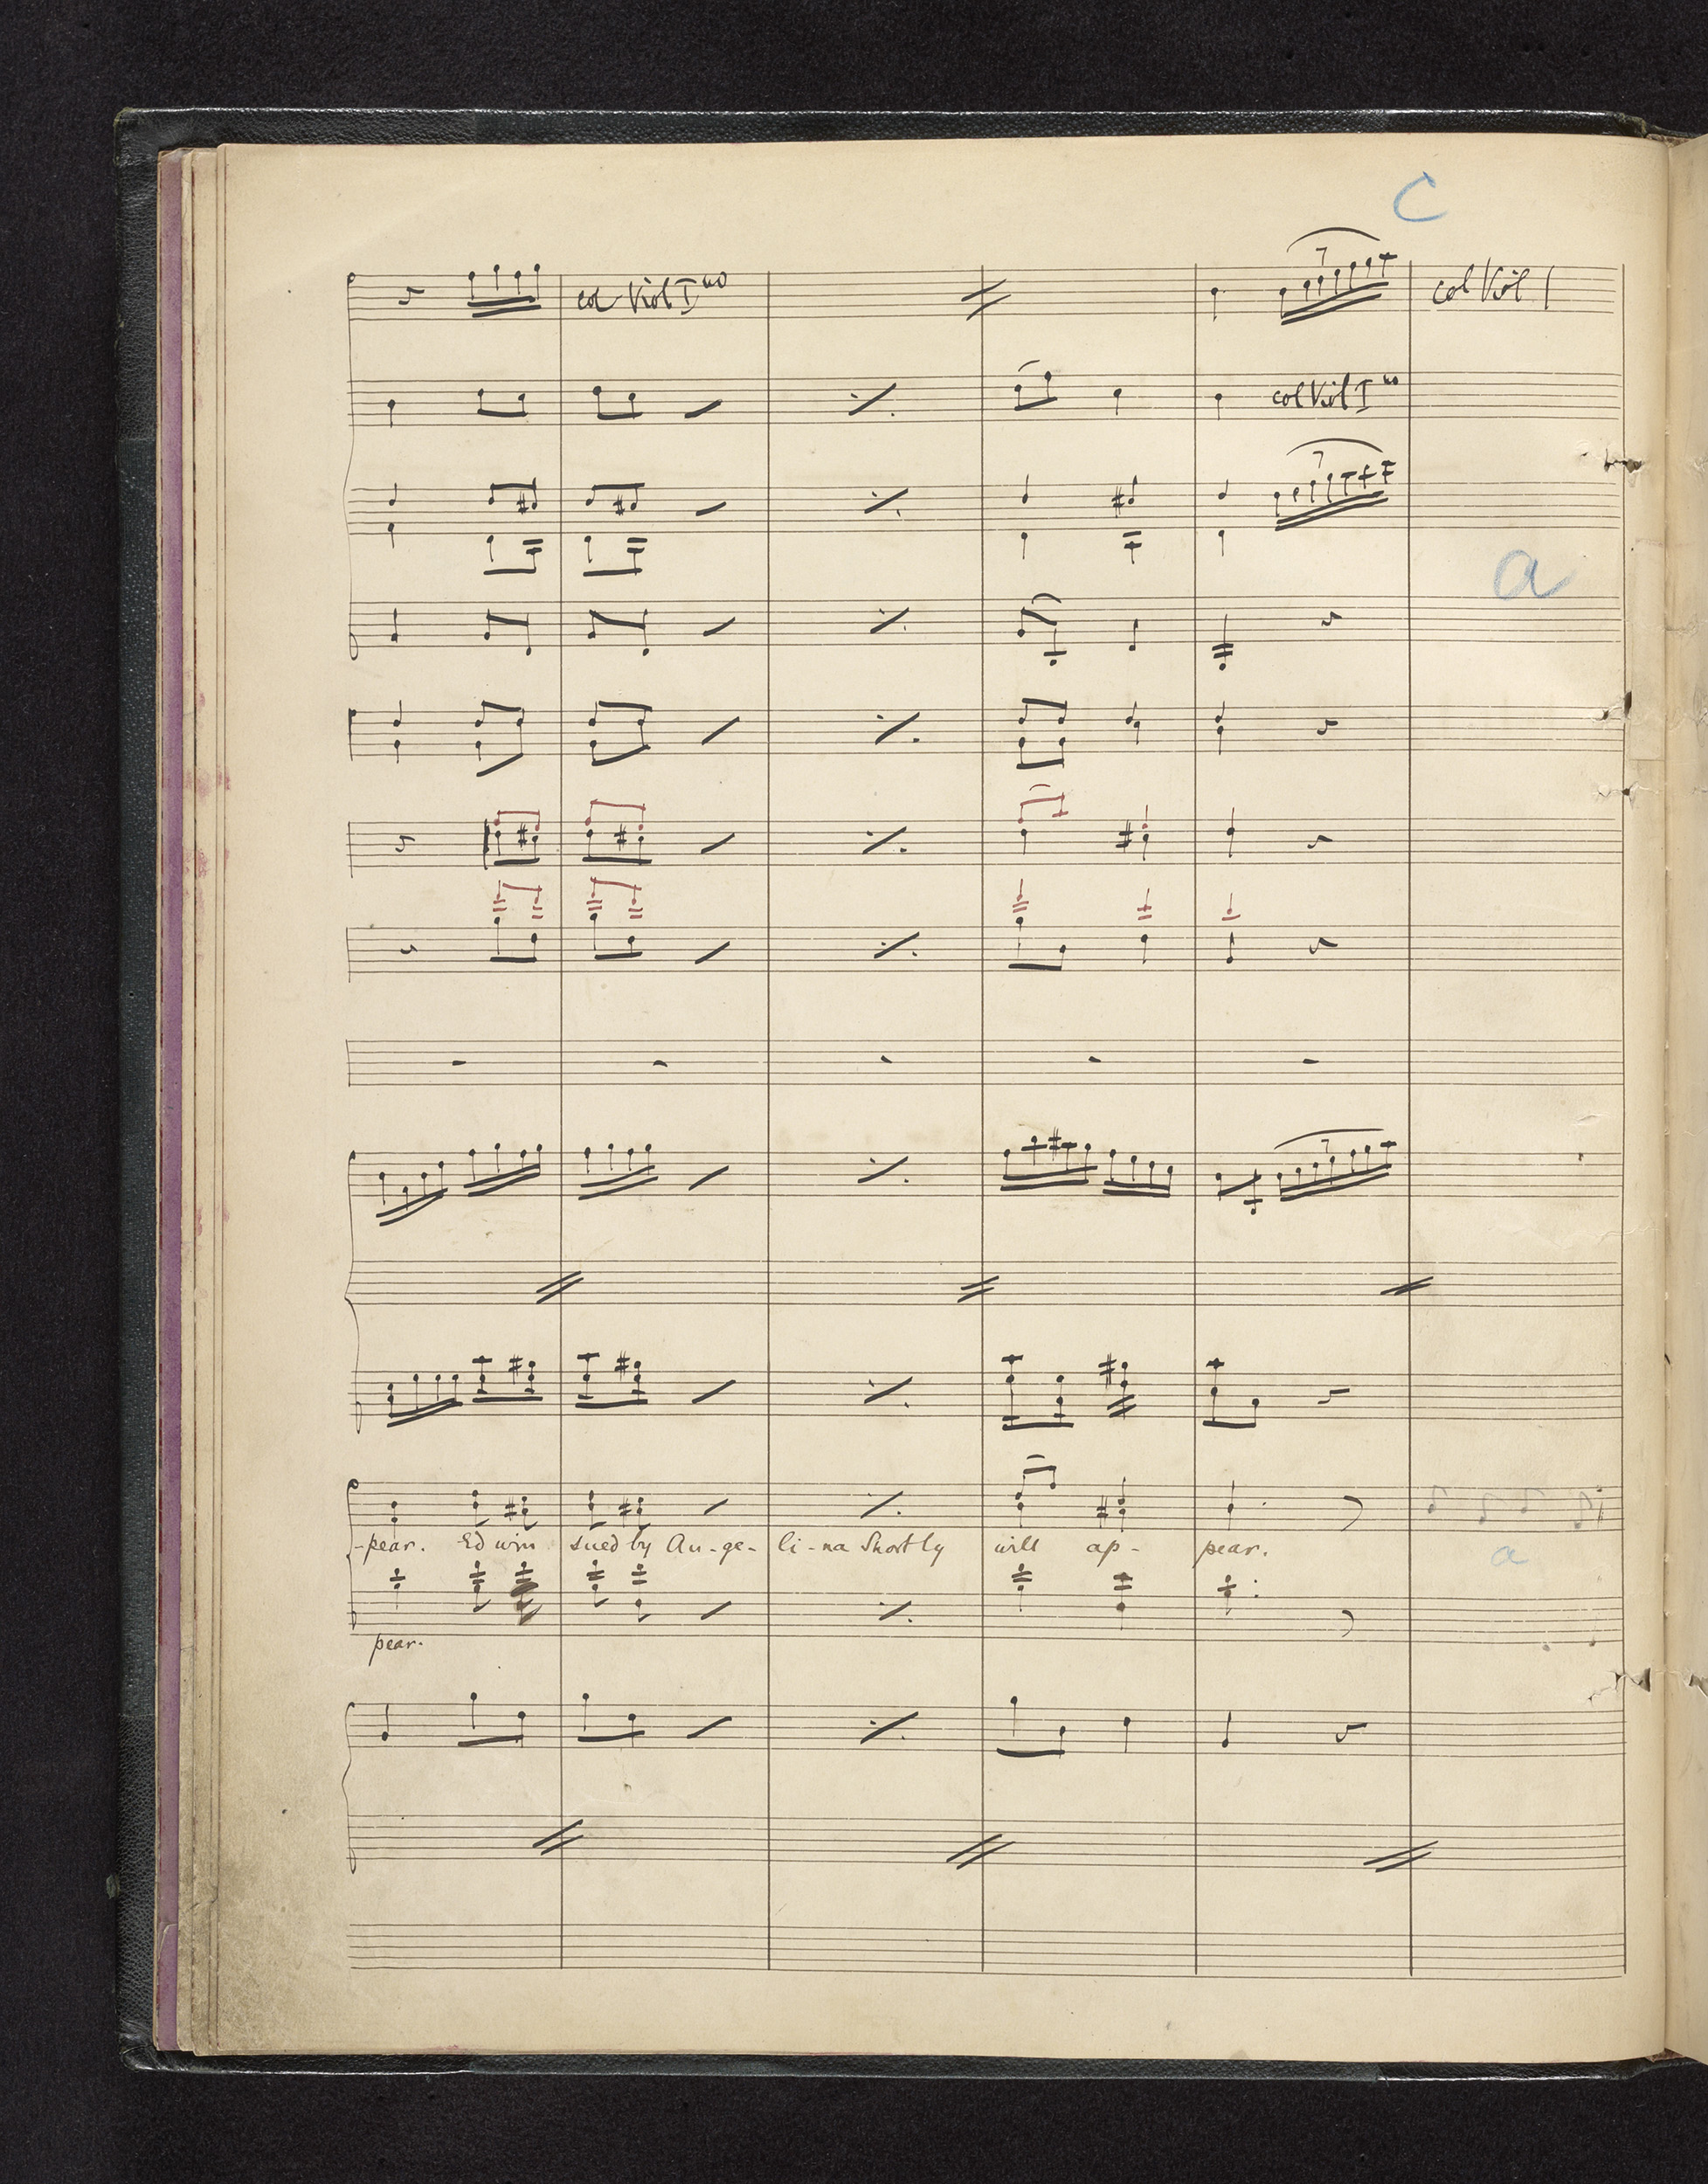 C
7
col Viol Imo col Viol I
col Viol Imo
7
a
7
-pear. Edwin sued by An-ge- li-na Shortly will ap- pear.
a
pear.